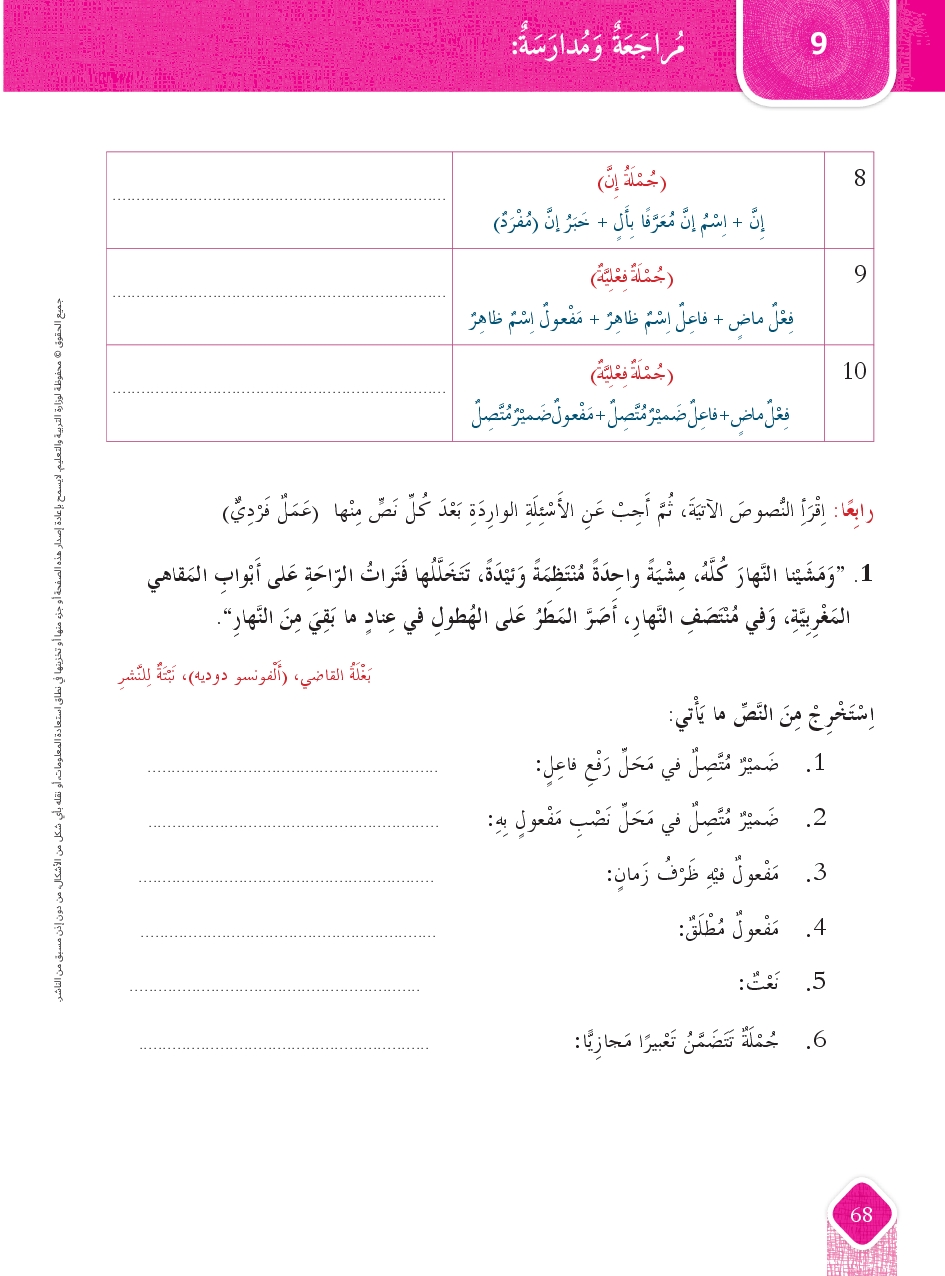 مُراجَعَةٌ وَمُدارَسَةٌ:
9
8
(جُمْلَةُ إِنَّ)
إِنَّ + اِسْمُ إِنَّ مُعَرَّفًا بِأَلٍ + خَبَرُ إِنَّ (مُفْرَدٌ)
9
(جُمْلَةٌ فِعْلِيَّةٌ)
فِعْلٌ ماضٍ + فاعِلٌ اِسْمٌ ظاهِرٌ + مَفْعولٌ اِسْمٌ ظاهِرٌ
10
(جُمْلَةٌ فِعْلِيَّةٌ)
فِعْلٌ ماضٍ+فاعِلٌ ضَميْرٌ مُتَّصِلٌ+مَفْعولٌ ضَميْرٌ مُتَّصِلٌ
رابِعًا: اِقْرَأِ النُّصوصَ الآتِيَةَ، ثُمَّ أَجِبْ عَنِ الأَسْئِلَةِ الوارِدَةِ بَعْدَ كُلِّ نَصٍّ مِنْها (عَمَلٌ فَرْدِيٌّ)
1. ”وَمَشَيْنا النَّهارَ كُلَّهُ، مِشْيَةً واحِدَةً مُنْتَظِمَةً وَئيْدَةً، تَتَخَلَّلُها فَتَراتُ الرّاحَةِ عَلى أَبْوابِ المَقاهي
المَغْرِبِيَّةِ، وَفي مُنْتَصَفِ النَّهارِ، أَصَرَّ المَطَرُ عَلى الهُطولِ في عِنادٍ ما بَقِيَ مِنَ النَّهارِ“.
بَغْلَةُ القاضي، (أَلْفونسو دوديه)، نَبْتَةٌ لِلنَّشرِ
اِسْتَخْرِجْ مِنَ النَّصِّ ما يَأْتي:
1. ضَميْرٌ مُتَّصِلٌ في مَحَلِّ رَفْعِ فاعِلٍ:
2. ضَميْرٌ مُتَّصِلٌ في مَحَلِّ نَصْبِ مَفْعولٍ بِهِ:
3. مَفْعولٌ فيْهِ ظَرْفُ زَمانٍ:
4. مَفْعولٌ مُطْلَقٌ:
5. نَعْتٌ:
6. جُمْلَةٌ تَتَضَمَّنُ تَعْبيرًا مَجازِيًّا:
جميع الحقوق © محفوظة لوزارة التربية والتعليم. لا يسمح بإعادة إصدار هذه الصفحة أو جزء منها أو تخزينها في نطاق استعادة المعلومات، أو نقله بأي شكل من الأشكال، من دون إذن مسبق من الناشر.
68